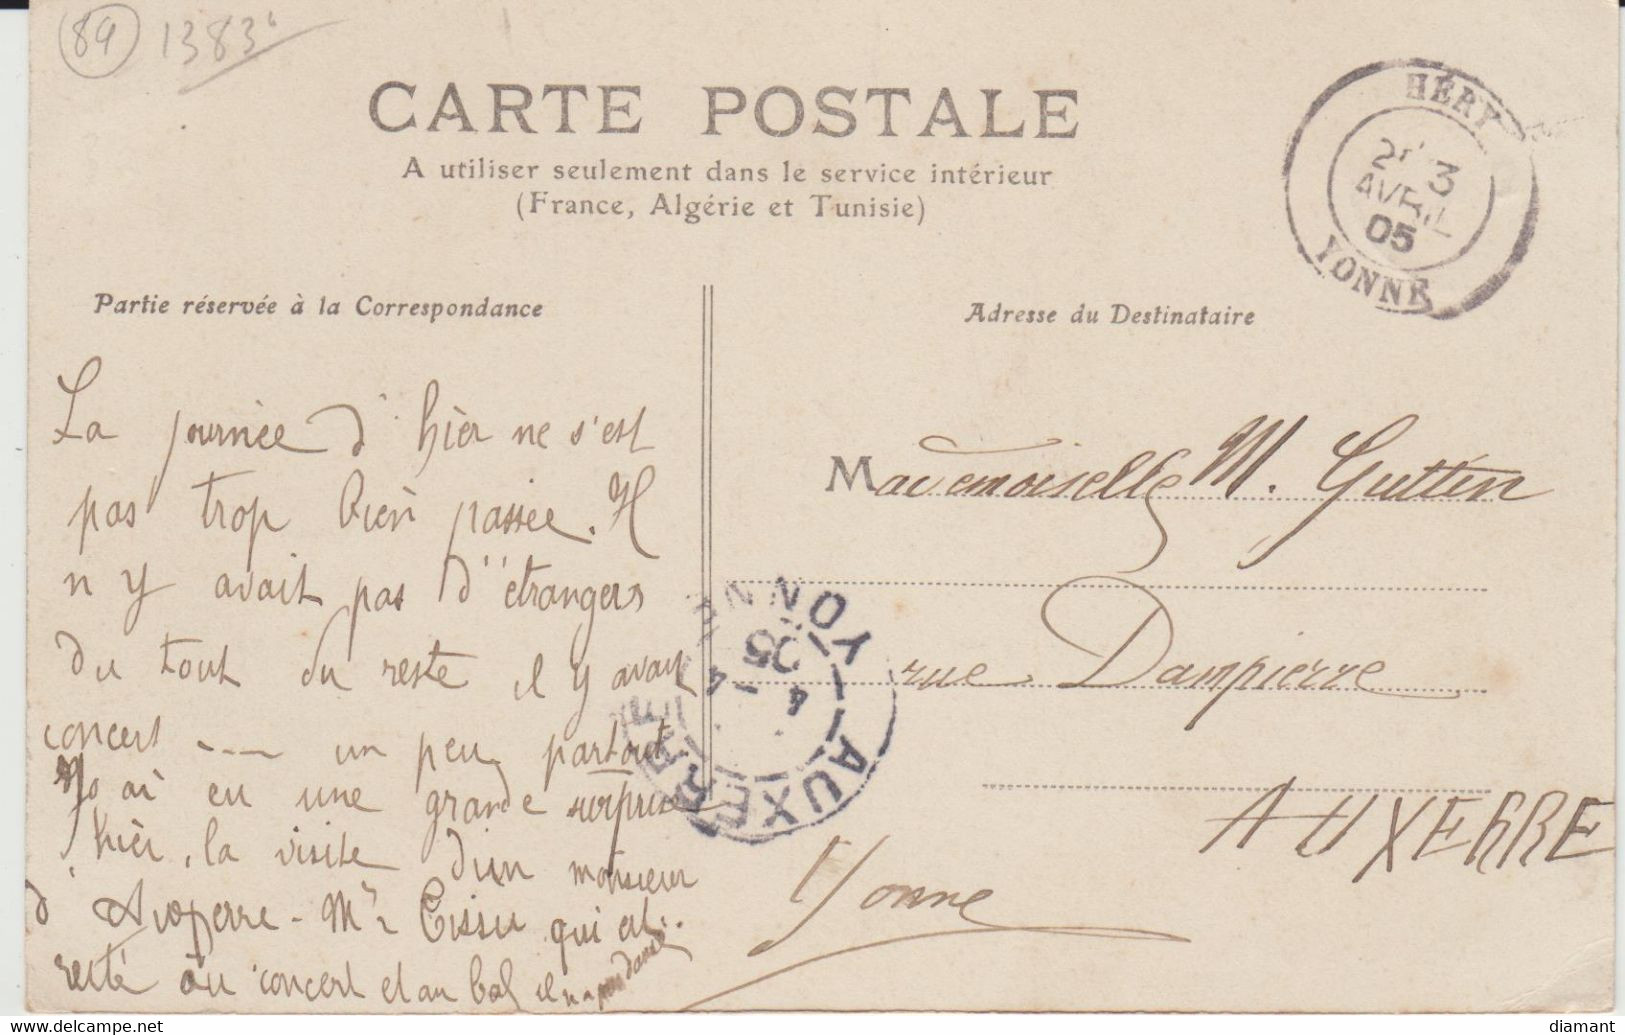 89 1383
CARTE POSTALE
A utiliser seulement dans le service intérieur
(France, Algérie et Tunisie)
HÉRY
3
AVRIL
05
YONNE
Partie réservée à la Correspondance
La journée d'hièr ne s'est
pas trop bien passée. Il
n y avait pas d'étrangers
du tout du reste il y avait
concert ---- un peu partout
ai eu une grande surprise
hièr, la visite d'un monsieur
d' Mr qui est
resté au concert et au bal il n a pas dansé
Adresse du Destinataire
Mademoiselle M. Guttin
rue Dampierre
AUXERRE
Yonne
AUXERRE
4 - 4
05
YONNE
diamant
www.delcampe.net